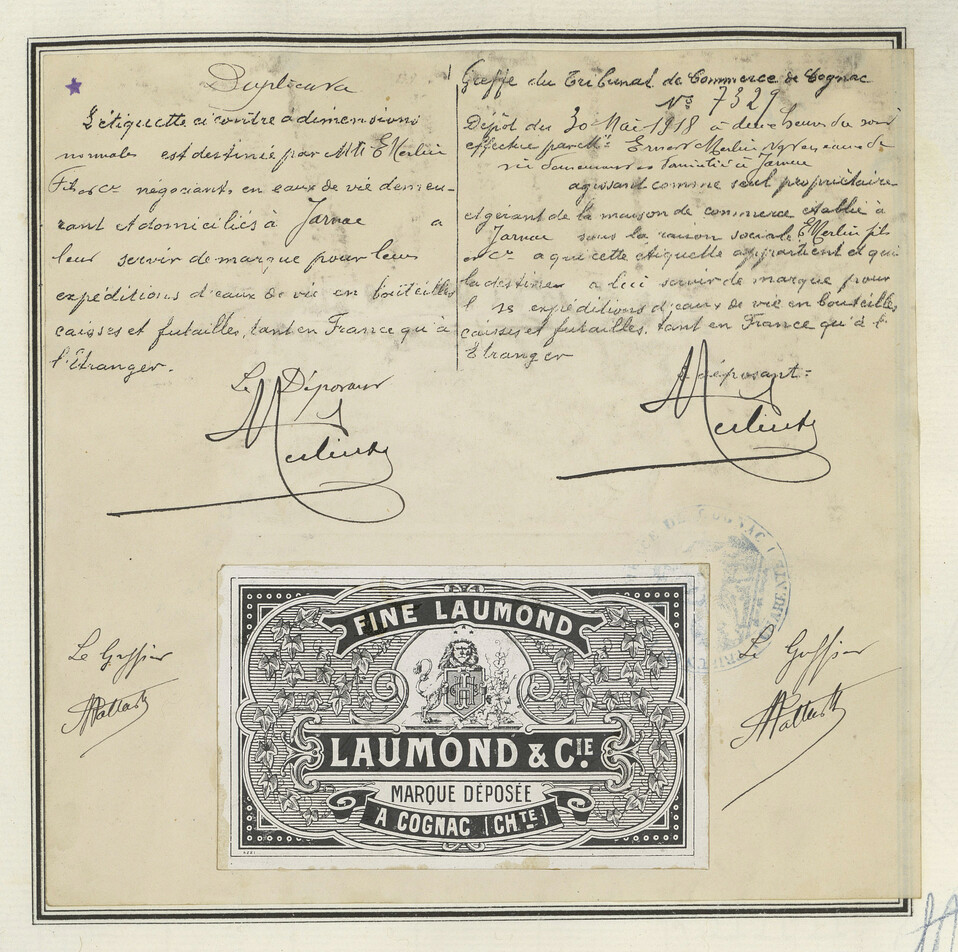 Duplicata
L'étiquette ci contre à dimensions
normales est destinée par MM E Merlin
Fils et Cie négociants en eaux de vie demeu-
rant et domiciliés à Jarnac a
leur servir de marque pour leurs
expéditions d'eaux de vie en bouteilles
caisses et futailles, tant en France qu'à
l'Etranger.
Le Déposant
Merlin
Greffe du Tribunal de Commerce de Cognac
No 7329
Dépôt du 30 Mai 1918 à deux heures du soir
effectué par Mr Ernest Merlin Ngt en eaux de
vie demeurant et domicilié à Jarnac
agissant comme seul propriétaire
et gérant de la maison de commerce établie à
Jarnac sous la raison sociale E Merlin fils
et Cie a qui cette etiquette appartient et qui
la destine a lui servir de marque pour
ses expéditions d'eaux de vie en bouteilles
caisses et futailles, tant en France qu'à l'
Etranger
Le déposant =
Merlin
DE COGNAC
Le Greffier
Le Greffier
FINE LAUMOND
LAUMOND & CIE.
MARQUE DÉPOSÉE
A COGNAC (CHTE)